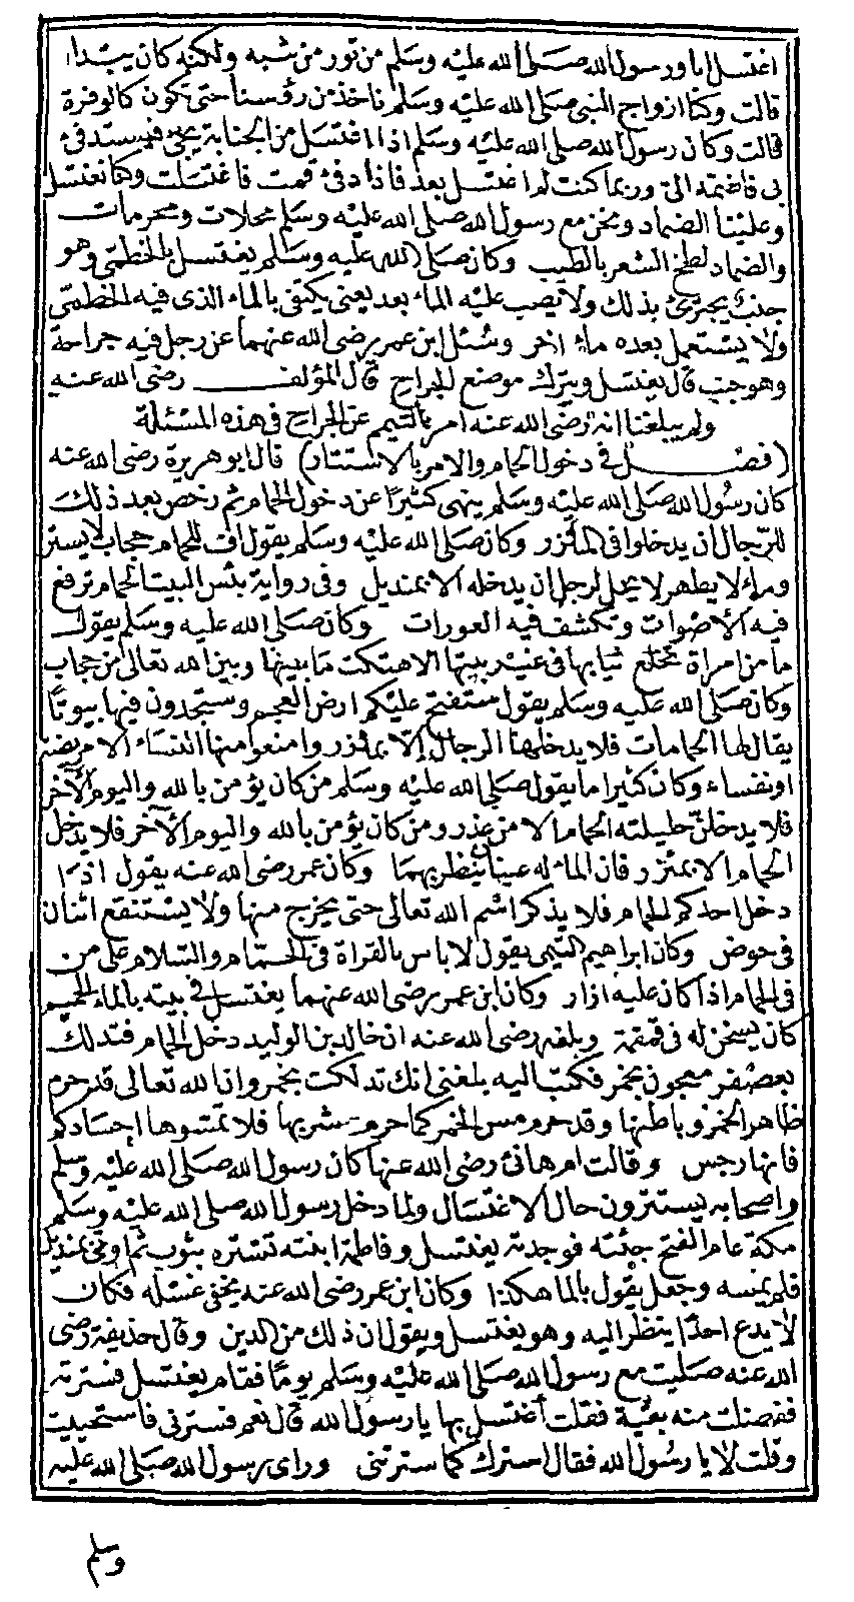 اغتسل انا ورسول الله صلى الله عليه وسلم من تور من شبه ولكنه كان يبتدا
قالت وكنا ازواج النبي صلى الله عليه وسلم ناخذ من رؤسنا حتى تكون كالوفرة
قالت وكان رسول الله صلى الله عليه وسلم اذا اغتسل من الجنابة يجئ فيستدفئ
بي فاضمه الي وربما كنت لم اغتسل بعد فاذا دفئ قمت فاغتسلت وكنا نغتسل
وعلينا الضماد ونحن مع رسول الله صلى الله عليه وسلم محلات ومحرمات
والضماد لطخ الشعر بالطيب وكان صلى الله عليه وسلم يغتسل بالخطمي وهو
جنب يجتزئ بذلك ولا يصب عليه الماء بعد يعني يكتفي بالماء الذي فيه الخطمي
ولا يستعمل بعده ماء اخر وسئل ابن عمر رضي الله عنهما عن رجل فيه جراحة
وهو جنب قال يغتسل ويترك موضع الجراح قال المؤلف رضي الله عنه
ولم يبلغنا انه رضي الله عنه امر بالتيمم عن الجراح في هذه المسئلة
(فصل في دخول الحمام والامر بالاستتار) قال ابو هريرة رضي الله عنه
كان رسول الله صلى الله عليه وسلم ينهى كثيرا عن دخول الحمام ثم رخص بعد ذلك
للرجال ان يدخلوا في المآزر وكان صلى الله عليه وسلم يقول اف للحمام حجاب لا يستر
وماء لا يطهر لا يحل لرجل ان يدخله الا بمنديل وفي رواية بئس البيت الحمام ترفع
فيه الاصوات وتكشف فيه العورات وكان صلى الله عليه وسلم يقول
ما من امراة تخلع ثيابها في غير بيتها الا هتكت ما بينها وبين الله تعالى من حجاب
وكان صلى الله عليه وسلم يقول ستفتح عليكم ارض العجم وستجدون فيها بيوتا
يقال لها الحمامات فلا يدخلها الرجال الا بمئزر وامنعوا منها النساء الا مريضة
او نفساء وكان كثيرا ما يقول صلى الله عليه وسلم من كان يؤمن بالله واليوم الآخر
فلا يدخلن حليلته الحمام الا من عذر ومن كان يؤمن بالله واليوم الآخر فلا يدخل
الحمام الا بمئزر فان الماء له عينان ينظر بهما وكان عمر رضي الله عنه يقول اذا
دخل احدكم الحمام فلا يذكر اسم الله تعالى حتى يخرج منها ولا يستنقع اثنان
في حوض وكان ابراهيم التيمي يقول لا باس بالقراة في الحمام والسلام على من
في الحمام اذا كان عليه ازار وكان ابن عمر رضي الله عنهما يغتسل في بيته بالماء الحميم
كان يسخن له في قمقمة وبلغه رضي الله عنه ان خالد بن الوليد دخل الحمام فتدلك
بعصفر معجون بخمر فكتب اليه بلغني انك تدلكت بخمر وان الله تعالى قد حرم
ظاهر الخمر وباطنها وقد حرم مس الخمر كما حرم شربها فلا تمسوها اجسادكم
فانها رجس وقالت ام هانئ رضي الله عنها كان رسول الله صلى الله عليه وسلم
واصحابه يستترون حال الاغتسال ولما دخل رسول الله صلى الله عليه وسلم
مكة عام الفتح جئته فوجدته يغتسل وفاطمة ابنته تستره بثوب ثم اوتي بمنديل
فلم يمسه وجعل يقول بالما هكذا وكان ابن عمر رضي الله عنه يخفي غسله فكان
لا يدع احدا ينظر اليه وهو يغتسل ويقول ان ذلك من الدين وقال حذيفة رضي
الله عنه صليت مع رسول الله صلى الله عليه وسلم يوما فقام يغتسل فسترته
ففضلت منه بقية فقلت أغتسل بها يا رسول الله قال نعم فسترني فاستحييت
وقلت لا يا رسول الله فقال استرك كما سترتني وراى رسول الله صلى الله عليه
وسلم